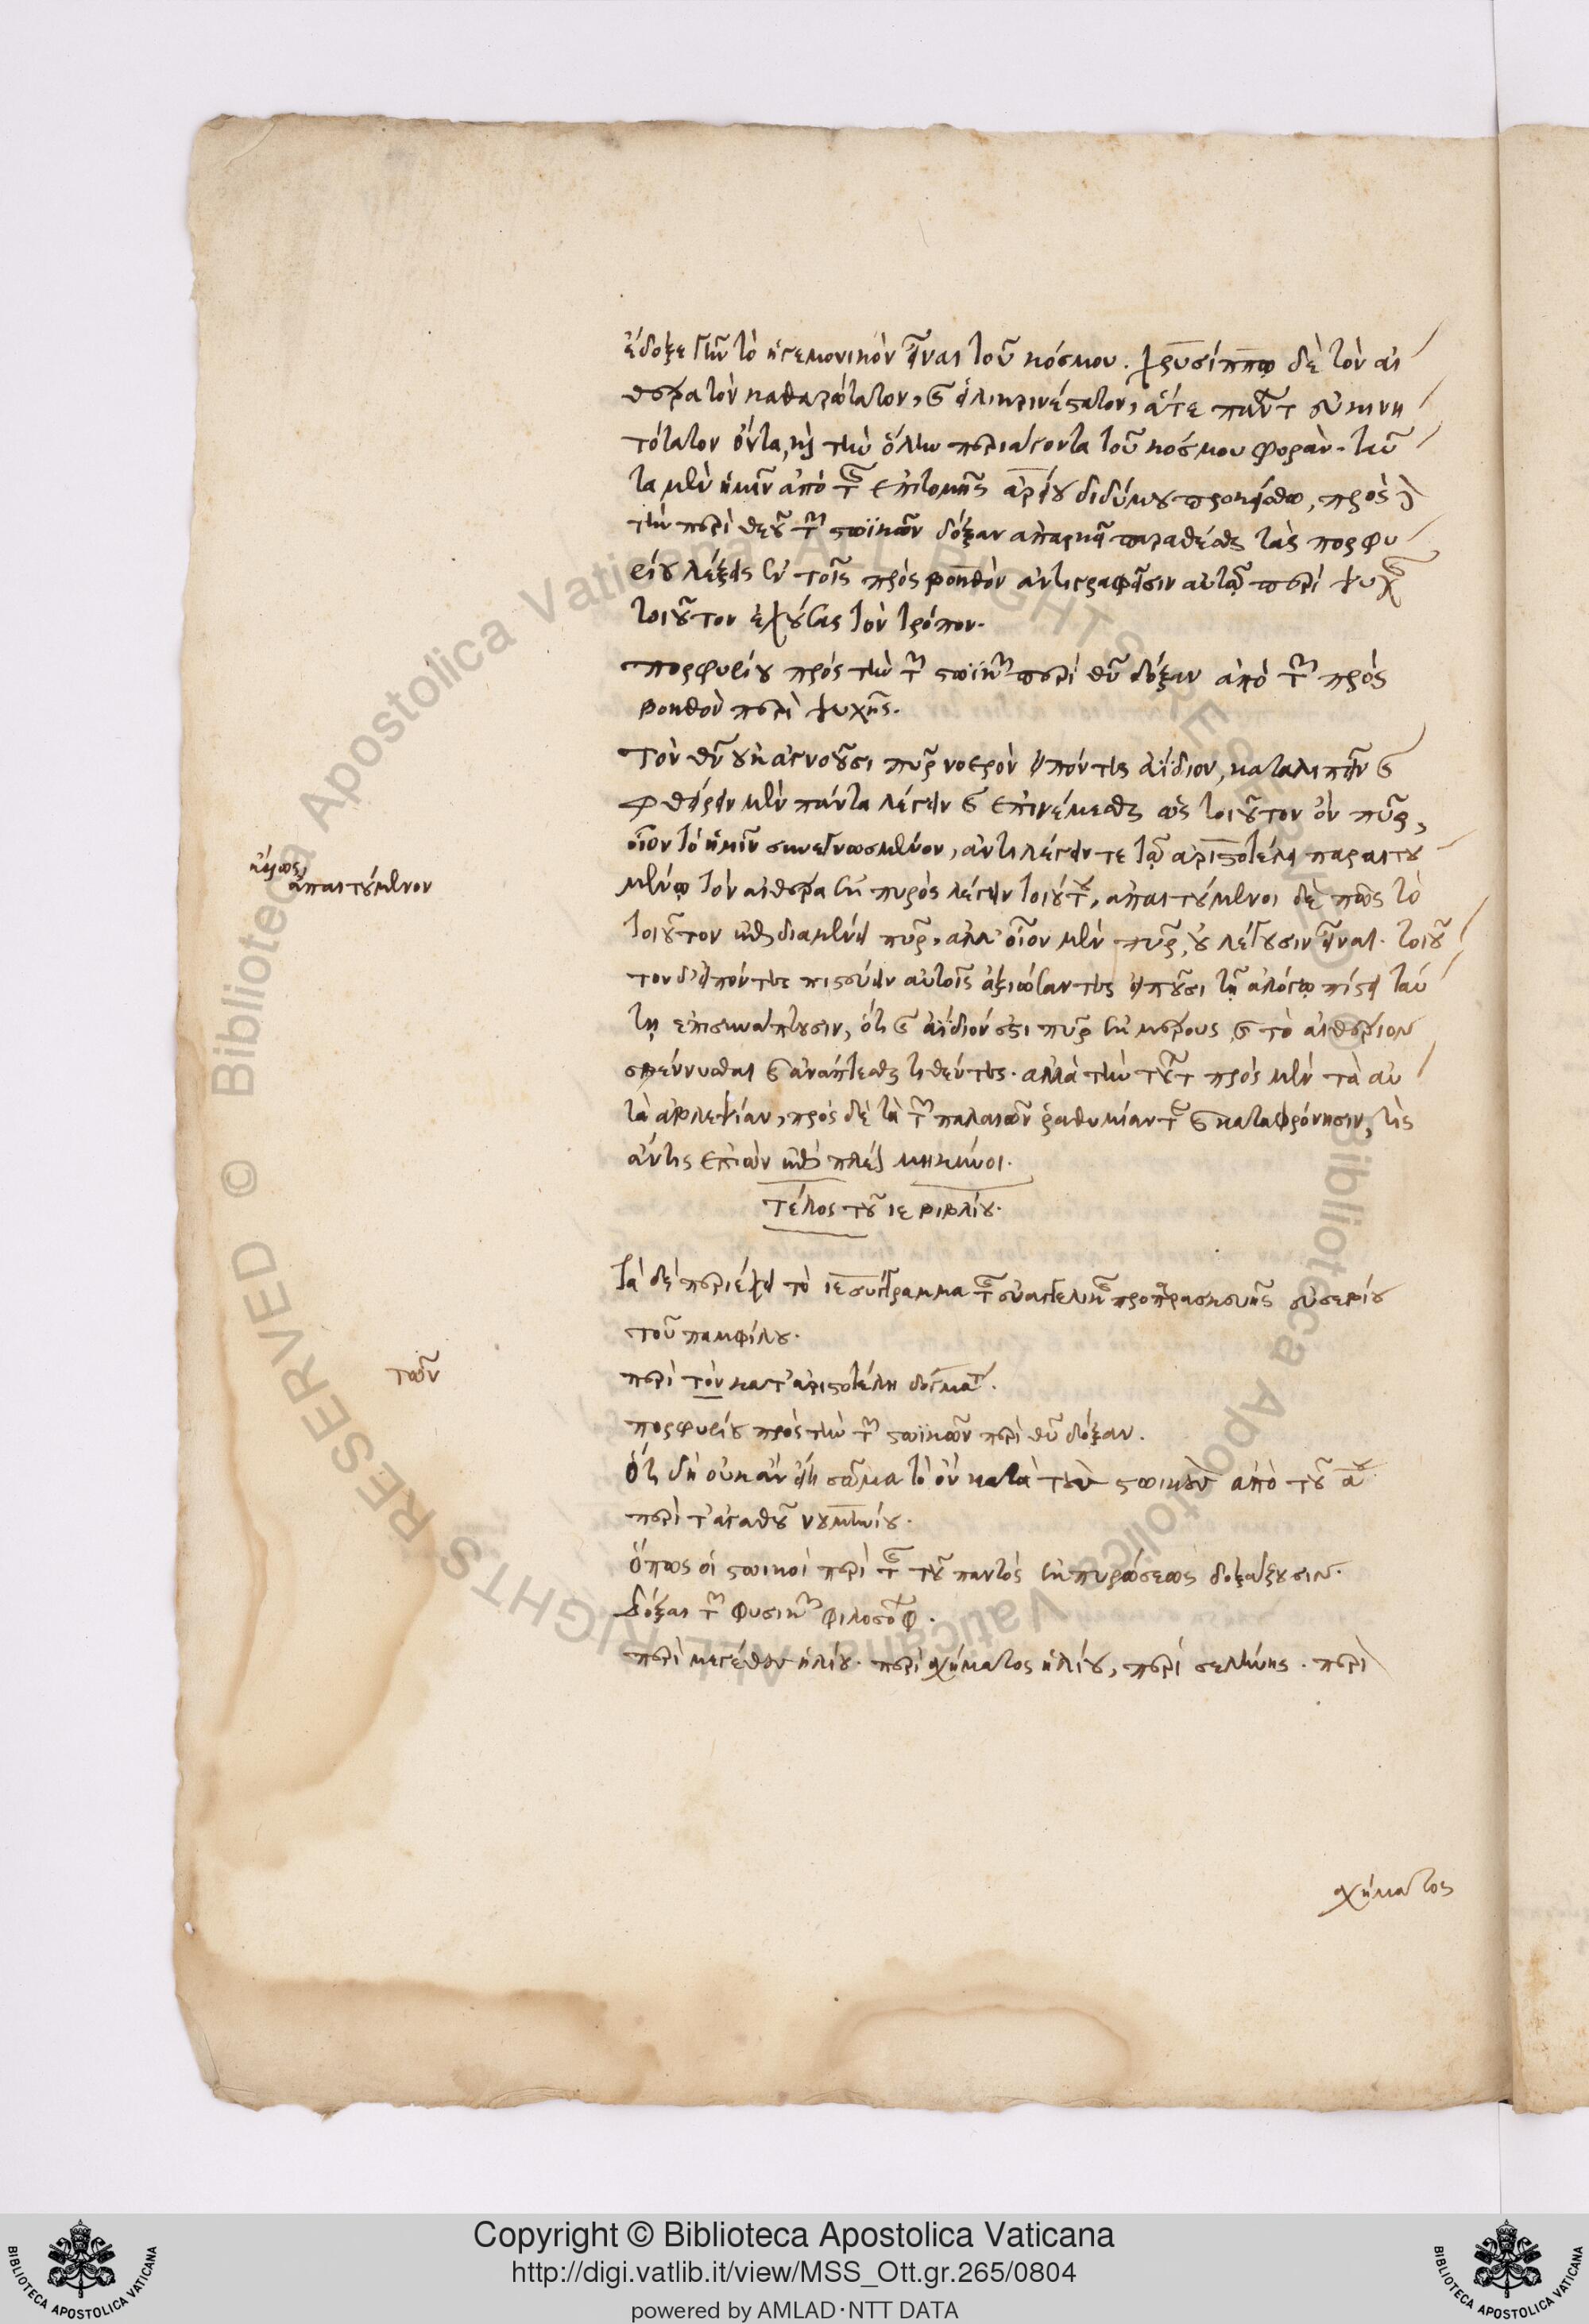 ἔδοξε γῆν τὸ ἡγεμονικὸν εἶναι τοῦ κόσμου. χρυσίππῳ δὲ τὸν αἰ
θέρα τὸν καθαρώτατον, καὶ εἰλικρινέστατον, ἅτε πάντ εὐκινη
τότατον ὄντα, καὶ τὴν ὅλην περιάγοντα τοῦ κόσμου φοράν. ταῦ
τα μὲν ἡμῖν ἀπὸ τῆς ἐπιτομῆς ἀρείου διδύμου προκείσθω, πρὸς δὲ
τὴν περὶ θεοῦ τῶν στωϊκῶν δόξαν ἀπαρκεῖ παραθέσθαι τὰς πορφυ
ρίου λέξεις ἐν τοῖς πρὸς βοηθὸν ἀντιγραφεῖσιν αὐτῷ περὶ ψυχῆς
τοιοῦτον ἐχούσας τὸν τρόπον.
πορφυρίου πρὸς τὴν τῶν στωϊκῶν περὶ θεοῦ δόξαν ἀπὸ τῶν πρὸς
βοηθὸν περὶ ψυχῆς.
Τὸν θεὸν οὐκ ἀγνοοῦσι πῦρ νοερὸν εἰπόντες ἀΐδιον, καταλιπεῖν καὶ
φθείρειν μὲν πάντα λέγειν καὶ ἐπινέμεσθαι ὡς τοιοῦτον ὂν πῦρ,
οἷον τὸ ἡμῖν συνεγνωσμένον, ἀντιλέγειν τε τῷ ἀριστοτέλει παραιτου
μένῳ τὸν αἰθέρα ἐκ πυρὸς λέγειν τοιούτου, ἀπαιτούμενοι δὲ πῶς τὸ
τοιοῦτον ἐπιδιαμένει πῦρ, ἀλλ' οἷον μὲν πῦρ, οὐ λέγουσιν εἶναι. τοιοῦ
τον δ' εἰπόντες πιστεύειν αὐτοῖς ἀξιώσαντες εἰποῦσι τῇ ἀλόγῳ πίστει ταύ
τῃ ἐπισυνάπτουσιν, ὅτι καὶ ἀΐδιόν ἐστι πῦρ ἐκ μέρους, καὶ τὸ αἰθέριον
σβέννυσθαι καὶ ἀνάπτεσθαι τιθέντες. ἀλλὰ τὴν τούτ πρὸς μὲν τὰ αὐ
τὰ ἀβλεψίαν, πρὸς δὲ τὰ τῶν παλαιῶν ῥαθυμίαν τε καὶ καταφρόνησιν, τίς
ἄν τις ἐπιὼν ἐπὶ πλέον μηκύνοι.
Τέλος τοῦ ιε βιβλίου.
Τάδε περιέχει τὸ ιε σύγγραμμα τῆς εὐαγγελικῆς προπαρασκευῆς εὐσεβίου
τοῦ παμφίλου.
περὶ τὸν κατ' ἀριστοτέλη δογμάτ.
πορφυρίου πρὸς τὴν τῶν στωϊκῶν περὶ θεοῦ δόξαν.
Ὅτι δὴ οὐκ ἂν εἴη σῶμα τὸ ὂν κατὰ τοὺς στωικοὺς ἀπὸ τοῦ αου
περὶ τἀγαθοῦ νουμηνίου.
Ὅπως οἱ στωικοὶ περὶ τῆς τοῦ παντὸς ἐκπυρώσεως δοξάζουσιν.
Δόξαι τῶν φυσικῶν φιλοσόφ.
περὶ μεγέθου ἡλίου. περὶ σχήματος ἡλίου, περὶ σελήνης. περὶ
σχήματος
ἀπαιτούμενον
τῶν
Copyright © Biblioteca Apostolica Vaticana
http://digi.vatlib.it/view/MSS_Ott.gr.265/0804
powered by AMLAD·NTT DATA
BIBLIOTECA APOSTOLICA VATICANA
BIBLIOTECA APOSTOLICA VATICANA